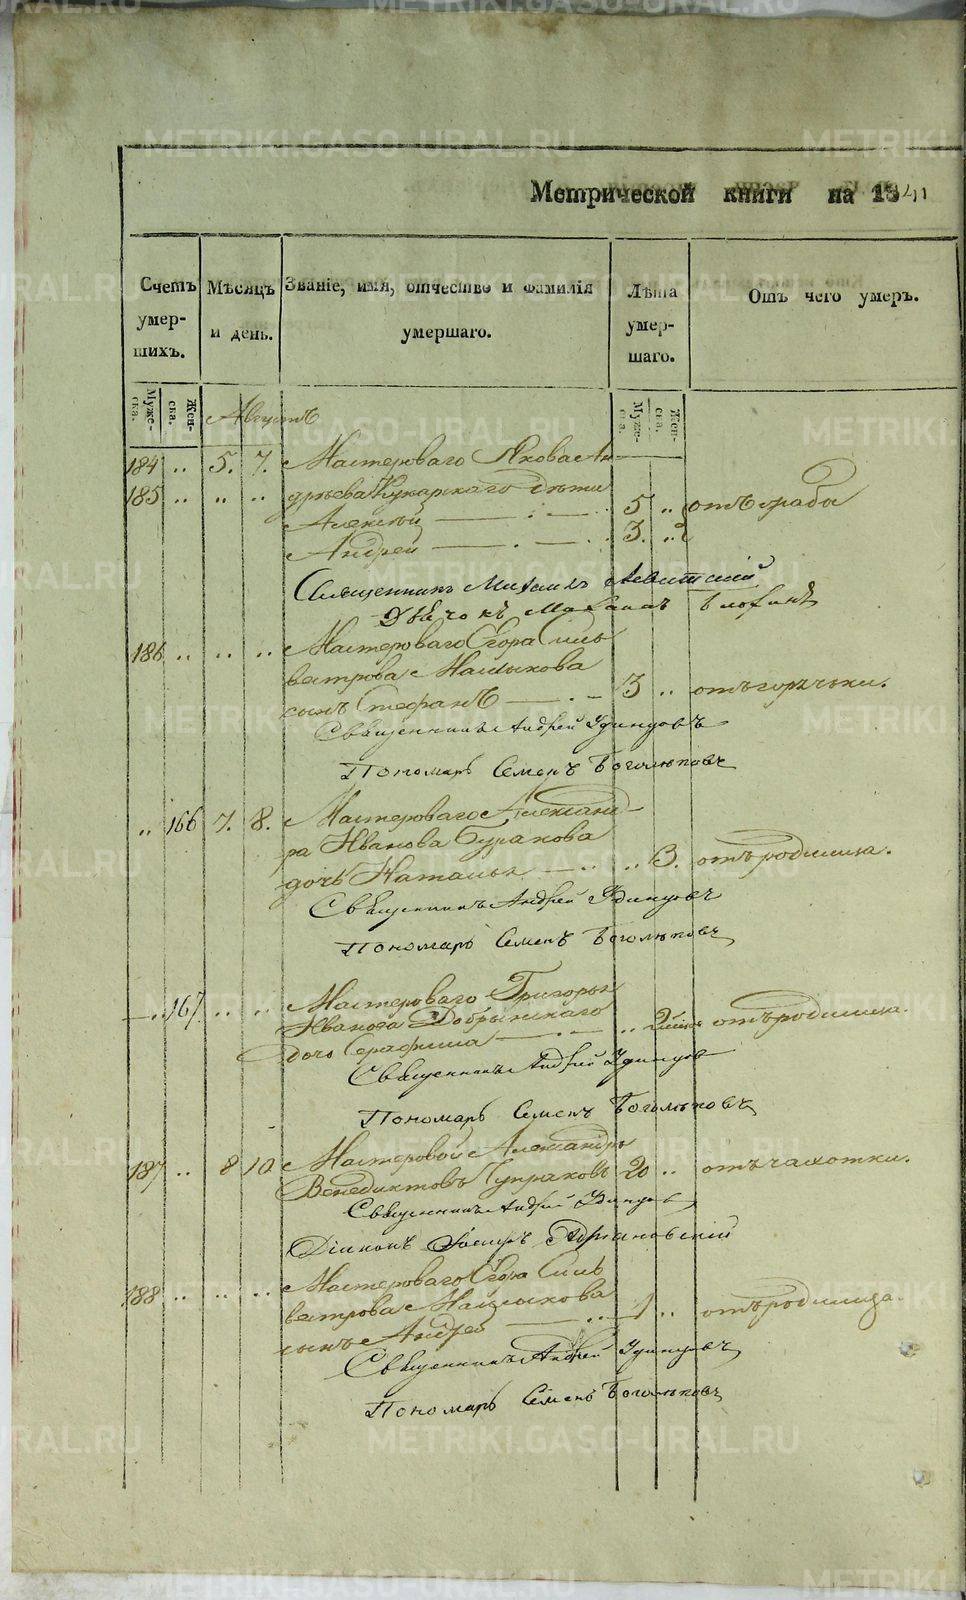 Метрической книги на 1841
Счетъ умер- шихъ.
Мѣсяцъ и день.
Званіе, имя, отчество и фамилія умершаго.
Лѣта умер- шаго.
Отъ чего умеръ.
Муже- ска.
Жен- ска.
Муже- ска.
Жен- ска.
Августъ
184 .. 5. 7. Мастероваго Якова Ан-
185 .. .. .. дреева Кукарскаго дѣти
Алексѣй 5 .. отъ
Андрей 3. ..
Священникъ Михаилъ Левитскій
186 .. .. .. Мастероваго Егора Силь
вестрова
сынъ Стефанъ 3 .. отъ горячки.
Священникъ Андрей Удинцовъ
Пономарь Семенъ Боголюповъ
.. 166 7. 8. Мастероваго Александ-
ра Иванова Буракова
дочь Наталья .. 3. отъ родимца.
Священникъ Андрей Удинцовъ
Пономарь Семенъ Боголюповъ
.. 167 .. .. Мастероваго Григорья
Иванова Добрынскаго
дочь Серафима .. отъ родимца.
Священникъ Андрей Удинцовъ
Пономарь Семенъ Боголюповъ
187 .. 8 10 Мастеровой Александръ
Венедиктовъ Чупраковъ 20 .. отъ чахотки.
Священникъ Андрей Удинцовъ
Діаконъ
188 .. .. .. Мастероваго Егора Силь
вестрова
сынъ Андрей 1 .. отъ родимца.
Священникъ Андрей Удинцовъ
Пономарь Семенъ Боголюповъ
METRIKI.GASO-URAL.RU